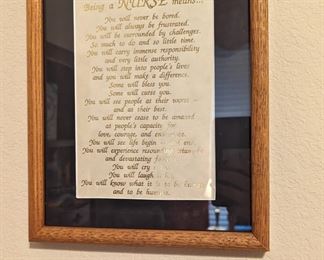 Being a NURSE means...
You will never be bored.
You will always be frustrated.
You will be surrounded by challenges.
So much to do and so little time.
You will carry immense responsibility
and very little authority.
You will step into people's lives
and you will make a difference.
Some will bless you.
Some will curse you.
You will see people at their worst —
and at their best.
You will never cease to be amazed
at people's capacity for
love, courage, and
You will see life begin end.
You will experience
and devastating
You will cry
You will laugh
You will know what it is to be
and to be